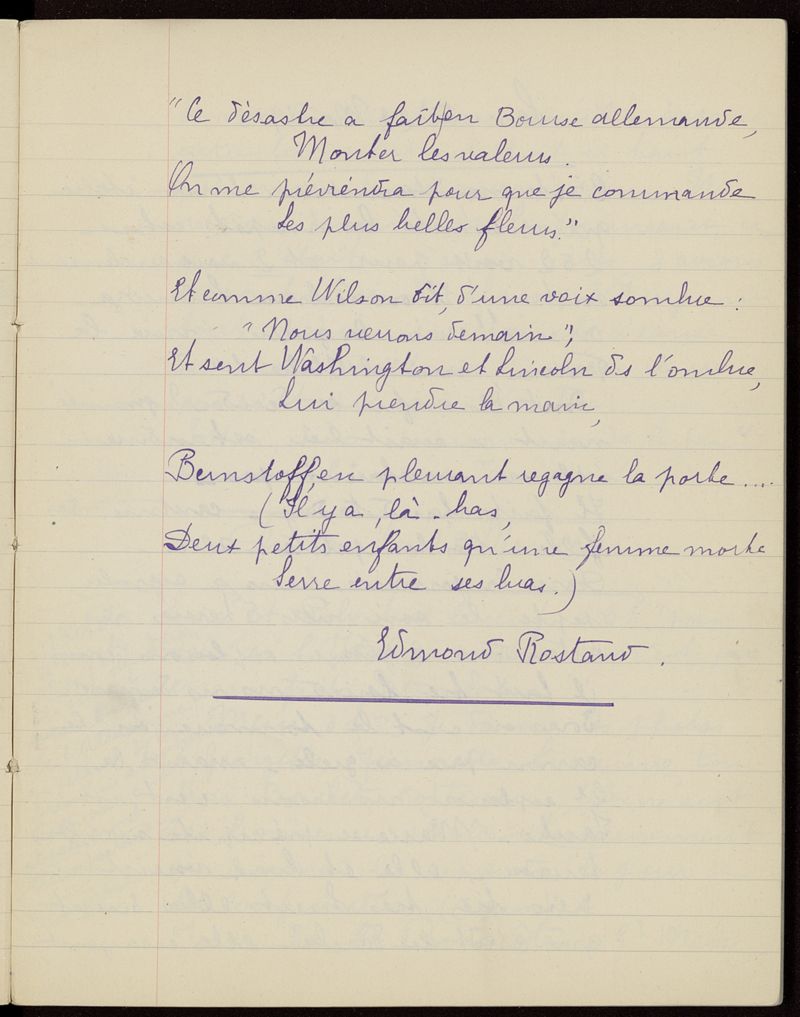 "Ce désastre a fait en Bourse allemande,
Monter les valeurs.
On me préviendra pour que je commande
Les plus belles fleurs."
Et comme Wilson dit, d'une voix sombre :
"Nous verrons demain",
Et sent Washington et Lincoln ds l'ombre,
Lui prendre la main,
Bernstoff, en pleurant regagne la porte....
(Il y a, là-bas,
Deux petits enfants qu'une femme morte
Serre entre ses bras.)
Edmond Rostand.